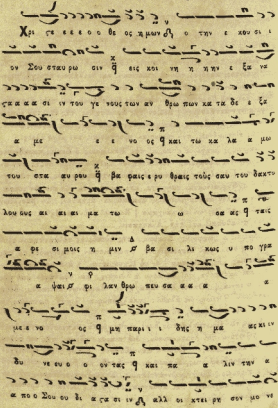 Χρι ζε ε ε ο ο θε ος η μων ο την ε κου σι ι
ον Σου σταυρω σιν εις κοι νη η ην ε ξα να
ζα α α α σι ιν του γε νους των αν θρω πων κα τα δε ε ξα
α με ε ε νο ος και τω κα λα α μω
του στα αυ ρου βα φαις ε ρυ θραις τους σαυ του δακτυ
λους αι αι αι μα τω ω ω σα ας ταις
α φε σι μοις η μιν βα σι λι κως υ πο γρα
α ψαι φι λαν θρω πευ σα α α α
με ε νο ος μη πα ρι ι ι δης η μα ας κι ιν
δυ νευ ο ο ον τας και πα α λιν την α
α πο Σου ου δι α ζα σι ιν αλλ οι κτει ρη σον μο νε